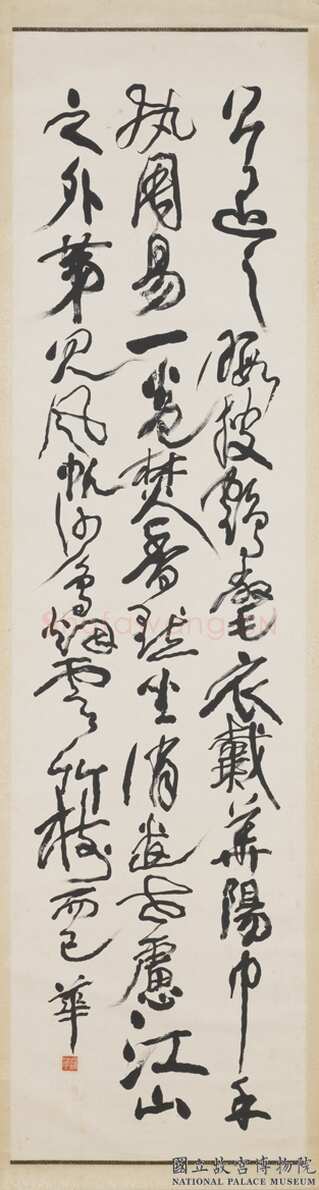 公退之暇披鶴氅衣戴華陽巾手
執周易一卷焚香默坐消遣世慮江山
之外第見風帆沙鳥煙雲竹樹而已 華
國立故宮博物院
NATIONAL PALACE MUSEUM